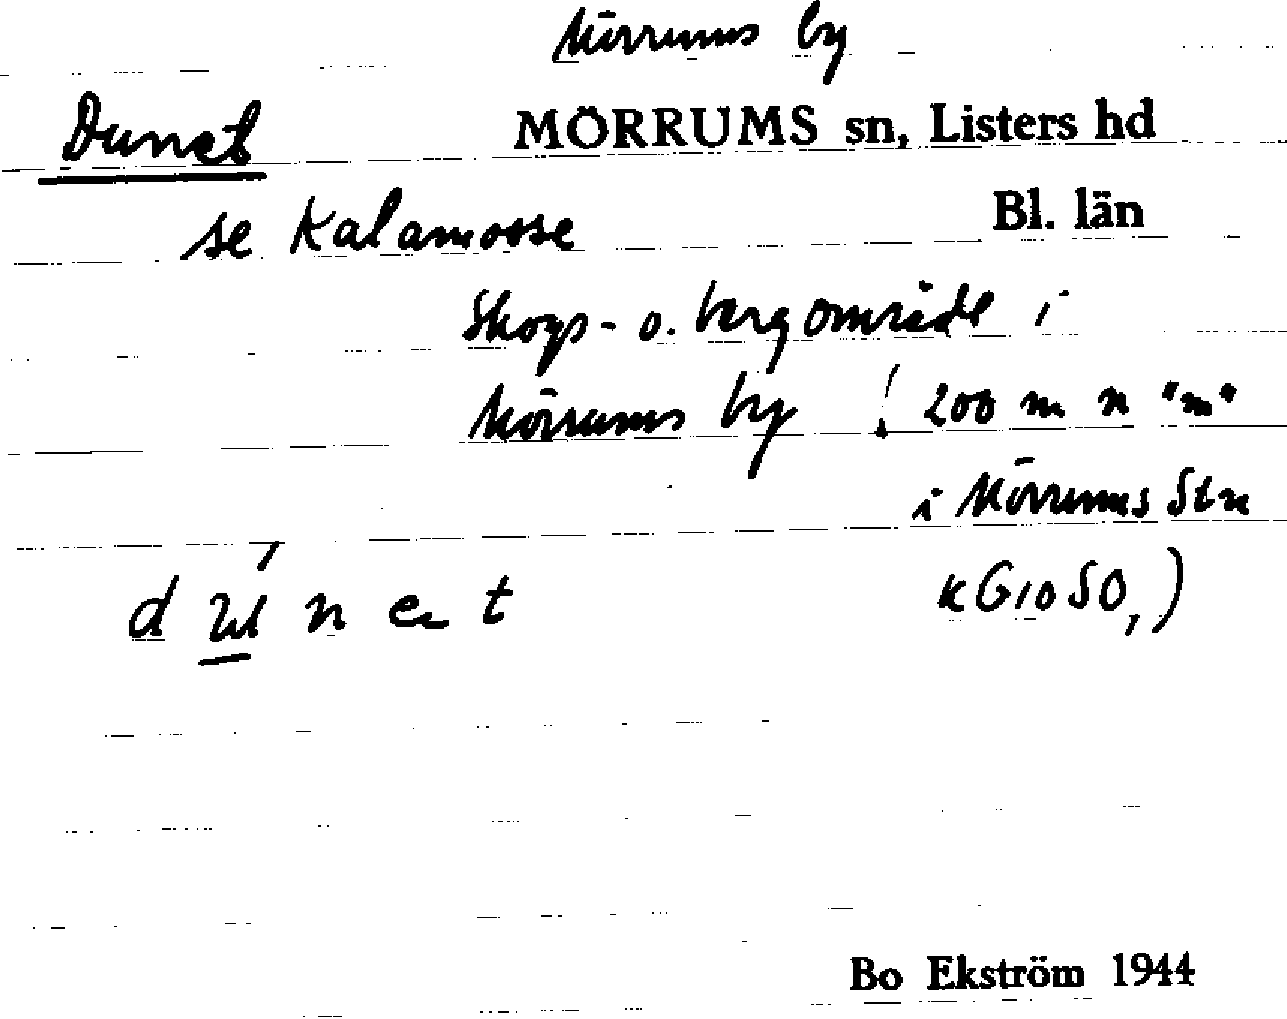 Mörrums by
Dunet MÖRRUMS sn, Listers hd
se Kalamosse Bl. län
Skogs- o. bergområde i
Mörrums by ! 200 m n "m"
i Mörrums Stn
d u n e t kG10SO,)
Bo Ekström 1944